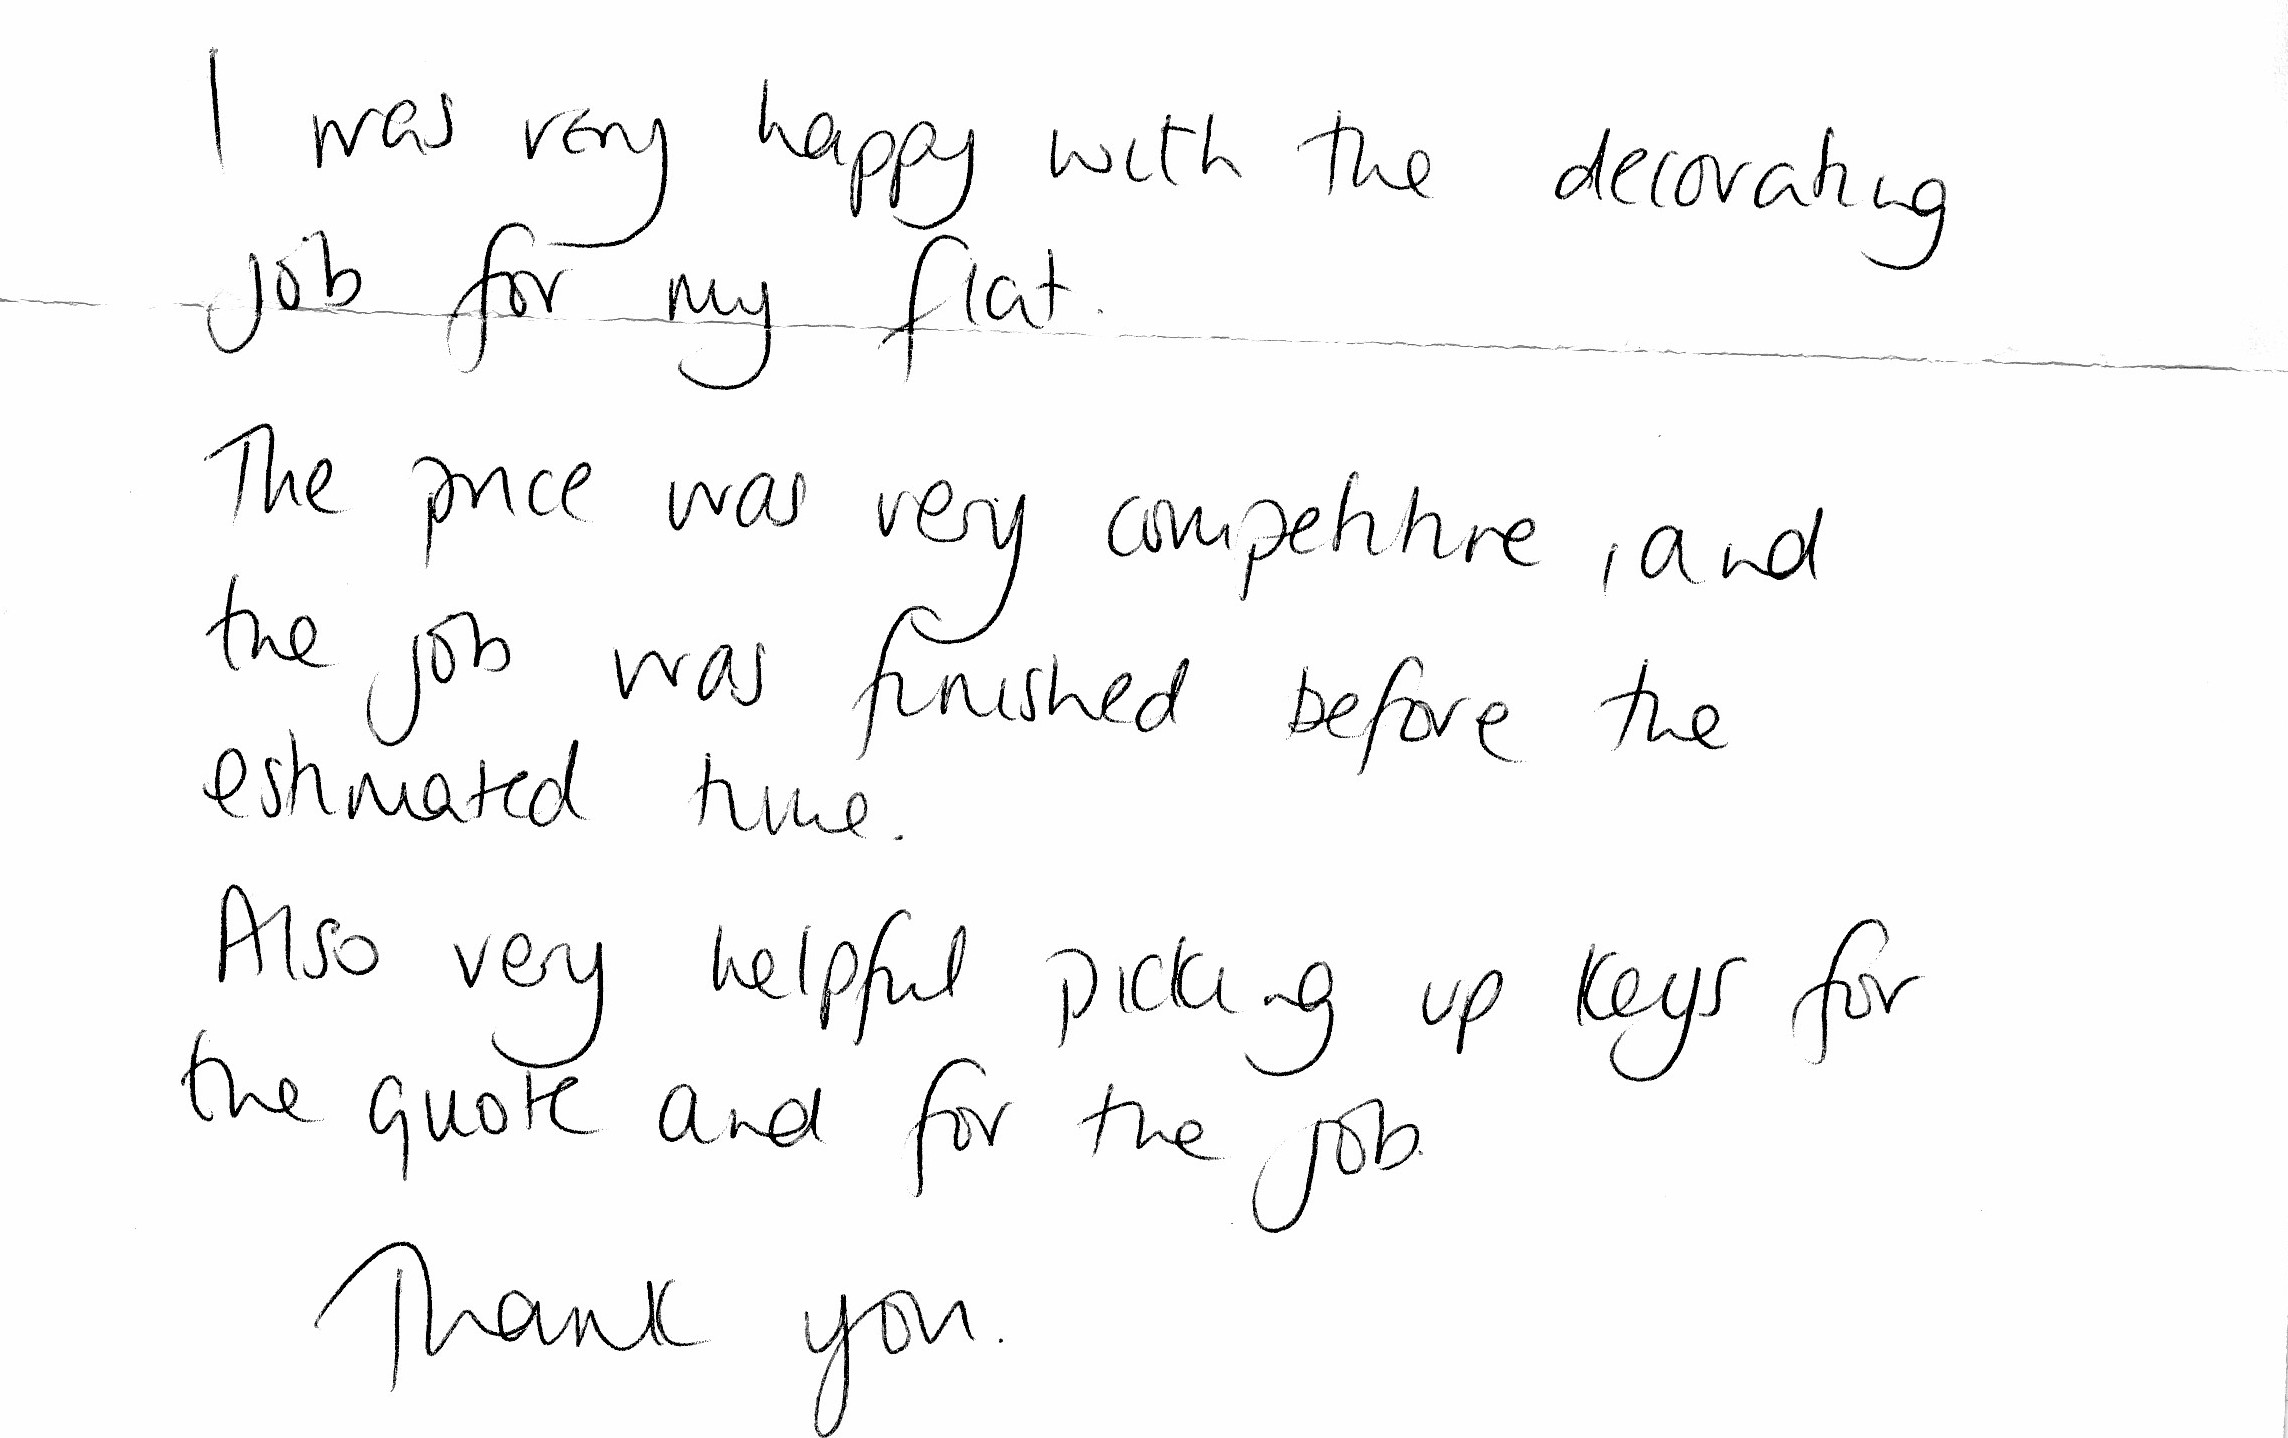 I was very happy with the decorating
job for my flat.
The price was very competitive, and
the job was finished before the
estimated time.
Also very helpful picking up keys for
the quote and for the job.
Thank you.